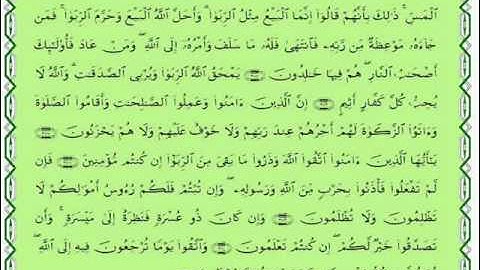 ٱلْمَسِّ ۚ ذَٰلِكَ بِأَنَّهُمْ قَالُوٓا۟ إِنَّمَا ٱلْبَيْعُ مِثْلُ ٱلرِّبَوٰا۟ ۗ وَأَحَلَّ ٱللَّهُ ٱلْبَيْعَ وَحَرَّمَ ٱلرِّبَوٰا۟ ۚ فَمَن
جَآءَهُۥ مَوْعِظَةٌ مِّن رَّبِّهِۦ فَٱنتَهَىٰ فَلَهُۥ مَا سَلَفَ وَأَمْرُهُۥٓ إِلَى ٱللَّهِ ۖ وَمَنْ عَادَ فَأُو۟لَٰٓئِكَ
أَصْحَٰبُ ٱلنَّارِ ۖ هُمْ فِيهَا خَٰلِدُونَ ۝ يَمْحَقُ ٱللَّهُ ٱلرِّبَوٰا۟ وَيُرْبِى ٱلصَّدَقَٰتِ ۗ وَٱللَّهُ لَا
يُحِبُّ كُلَّ كَفَّارٍ أَثِيمٍ ۝ إِنَّ ٱلَّذِينَ ءَامَنُوا۟ وَعَمِلُوا۟ ٱلصَّٰلِحَٰتِ وَأَقَامُوا۟ ٱلصَّلَوٰةَ
وَءَاتَوُا۟ ٱلزَّكَوٰةَ لَهُمْ أَجْرُهُمْ عِندَ رَبِّهِمْ وَلَا خَوْفٌ عَلَيْهِمْ وَلَا هُمْ يَحْزَنُونَ ۝
يَٰٓأَيُّهَا ٱلَّذِينَ ءَامَنُوا۟ ٱتَّقُوا۟ ٱللَّهَ وَذَرُوا۟ مَا بَقِىَ مِنَ ٱلرِّبَوٰٓا۟ إِن كُنتُم مُّؤْمِنِينَ ۝ فَإِن
لَّمْ تَفْعَلُوا۟ فَأْذَنُوا۟ بِحَرْبٍ مِّنَ ٱللَّهِ وَرَسُولِهِۦ ۖ وَإِن تُبْتُمْ فَلَكُمْ رُءُوسُ أَمْوَٰلِكُمْ لَا
تَظْلِمُونَ وَلَا تُظْلَمُونَ ۝ وَإِن كَانَ ذُو عُسْرَةٍ فَنَظِرَةٌ إِلَىٰ مَيْسَرَةٍ ۚ وَأَن
تَصَدَّقُوا۟ خَيْرٌ لَّكُمْ ۖ إِن كُنتُمْ تَعْلَمُونَ ۝ وَٱتَّقُوا۟ يَوْمًا تُرْجَعُونَ فِيهِ إِلَى ٱللَّهِ ۖ